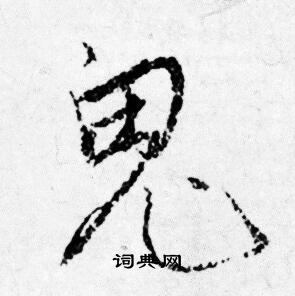 鬼
词典网